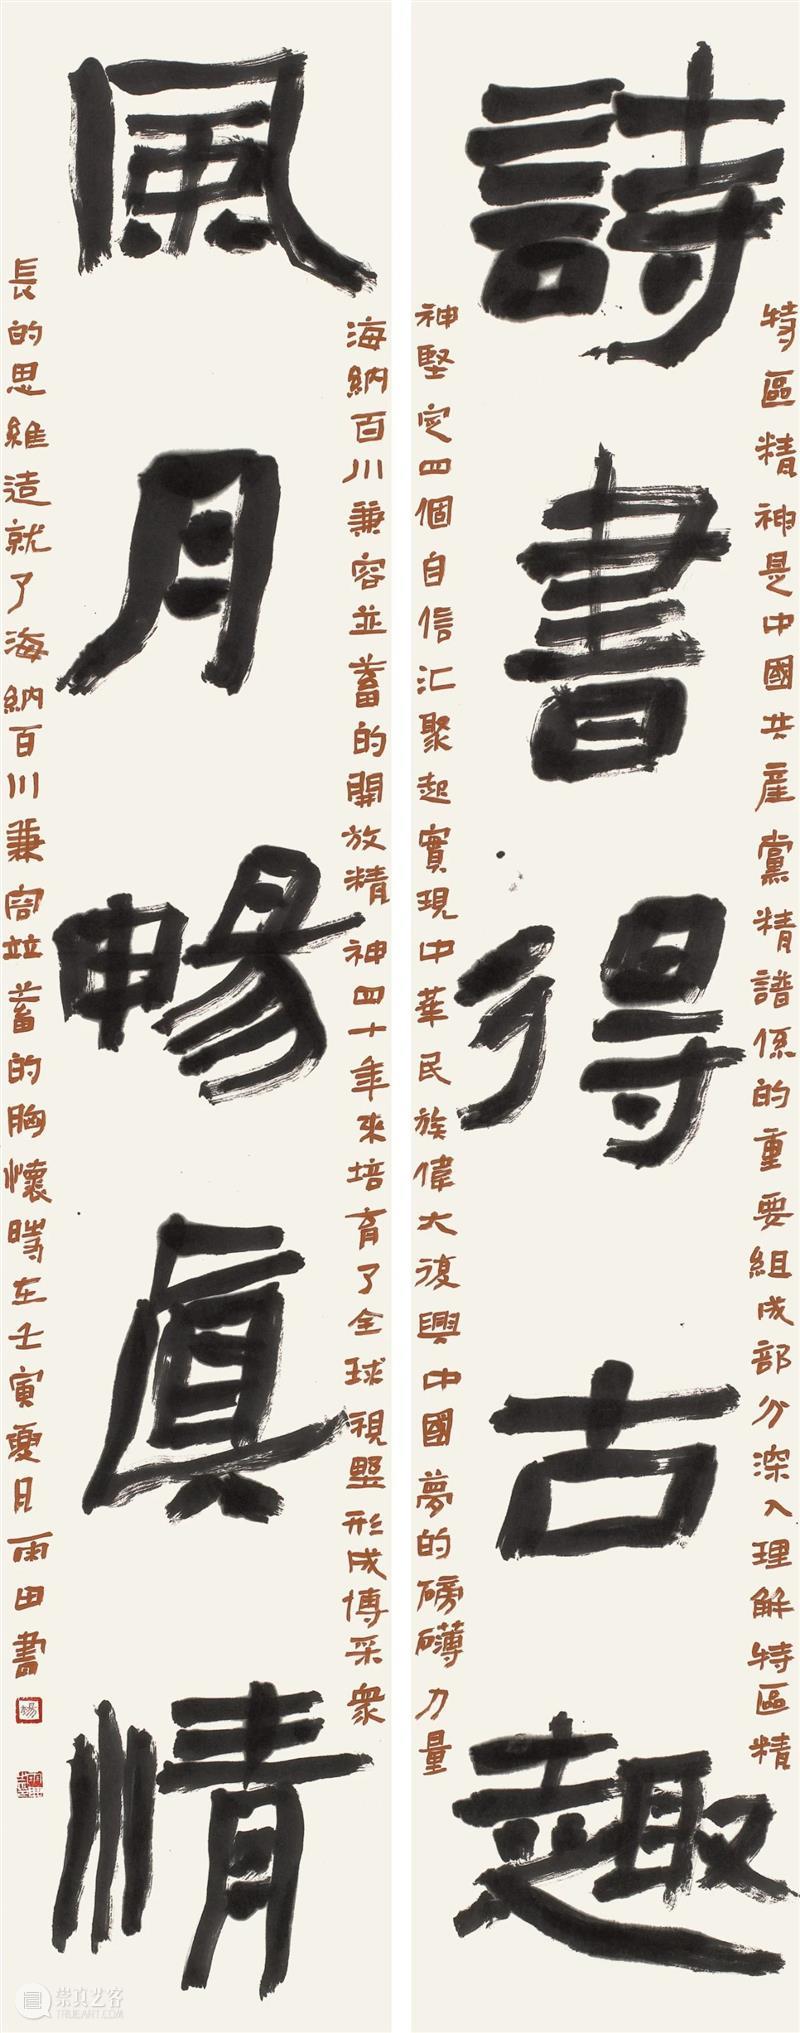 詩書得古趣
特區精神是中國共産黨精譜係的重要組成部分深入理解特區精
神堅定四個自信汇聚起實現中華民族偉大復興中國夢的磅礴力量
風月暢真情
海納百川兼容並蓄的開放精神四十年來培育了全球視野形成博采衆
長的思維造就了海納百川兼容並蓄的胸懷時在壬寅夏月雨田書
崇真艺客
TRUEART.COM